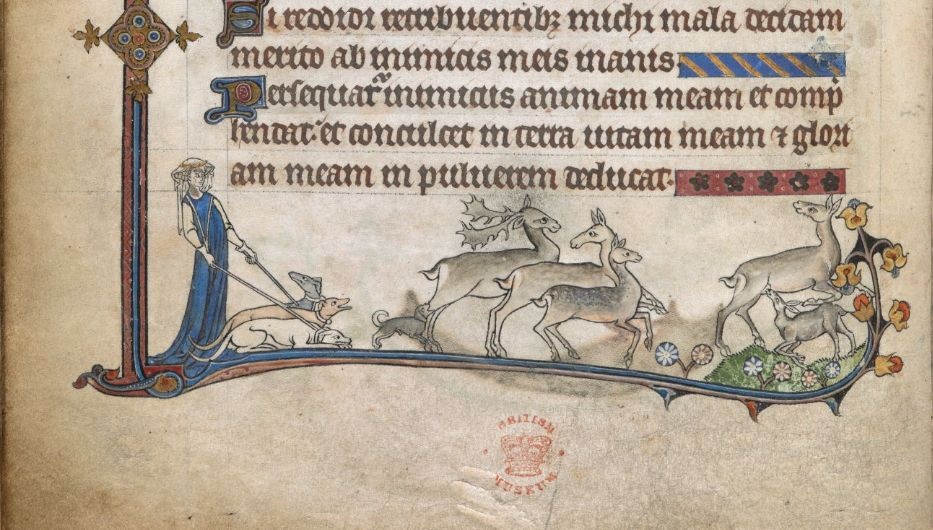 Si reddidi retribuentibꝫ michi mala decidam
merito ab inimicis meis inanis
Persequat᷑ inimicus animam meam et comp̄
hendat: et conculcet in terra uitam meam ⁊ glori
am meam in puluerem deducat.
BRITISH
MUSEUM